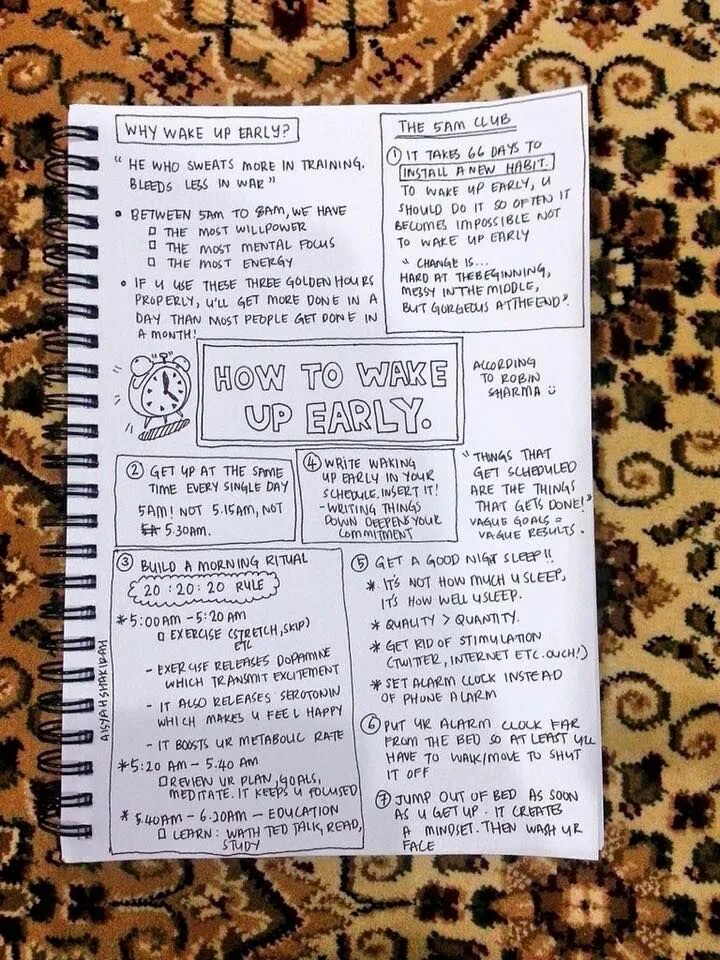 WHY WAKE UP EARLY?
" HE WHO SWEATS MORE IN TRAINING.
BLEEDS LESS IN WAR "
• BETWEEN 5AM TO 8AM, WE HAVE
□ THE MOST WILLPOWER
□ THE MOST MENTAL FOCUS
□ THE MOST ENERGY
• IF U USE THESE THREE GOLDEN HOURS
PROPERLY, U'LL GET MORE DONE IN A
DAY THAN MOST PEOPLE GET DONE IN
A MONTH!
THE 5AM CLUB
① IT TAKES 66 DAYS TO
INSTALL A NEW HABIT.
TO WAKE UP EARLY, U
SHOULD DO IT SO OFTEN IT
BECOMES IMPOSSIBLE NOT
TO WAKE UP EARLY
" CHANGE IS...
HARD AT THE BEGINNING,
MESSY IN THE MIDDLE,
BUT GORGEOUS AT THE END".
HOW TO WAKE
UP EARLY.
ACCORDING
TO ROBIN
SHARMA ☺
② GET UP AT THE SAME
TIME EVERY SINGLE DAY
5AM! NOT 5.15AM, NOT
5.30AM.
④ WRITE WAKING
UP EARLY IN YOUR
SCHEDULE. INSERT IT!
- WRITING THINGS
DOWN DEEPENS YOUR
COMMITMENT
"THINGS THAT
GET SCHEDULED
ARE THE THINGS
THAT GETS DONE!"
VAGUE GOALS =
VAGUE RESULTS.
③ BUILD A MORNING RITUAL
20 : 20 : 20 RULE
* 5:00AM - 5:20 AM
□ EXERCISE (STRETCH, SKIP)
ETC
- EXERCISE RELEASES DOPAMINE
WHICH TRANSMIT EXCITEMENT
- IT ALSO RELEASES SEROTONIN
WHICH MAKES U FEEL HAPPY
- IT BOOSTS UR METABOLIC RATE
* 5:20 AM - 5.40 AM
□ REVIEW UR PLAN, GOALS,
MEDITATE. IT KEEPS U FOCUSED
* 5.40AM - 6.20AM - EDUCATION
□ LEARN : WATH TED TALK, READ,
STUDY
AISYAHSHAKIRAH
⑤ GET A GOOD NIGT SLEEP!!
* IT'S NOT HOW MUCH U SLEEP,
IT'S HOW WELL U SLEEP.
* QUALITY > QUANTITY.
* GET RID OF STIMULATION
(TWITTER, INTERNET ETC. OUCH!)
* SET ALARM CLOCK INSTEAD
OF PHONE ALARM
⑥ PUT UR ALARM CLOCK FAR
FROM THE BED SO AT LEAST YU
HAVE TO WALK/MOVE TO SHUT
IT OFF
⑦ JUMP OUT OF BED AS SOON
AS U GET UP. IT CREATES
A MINDSET. THEN WASH UR
FACE